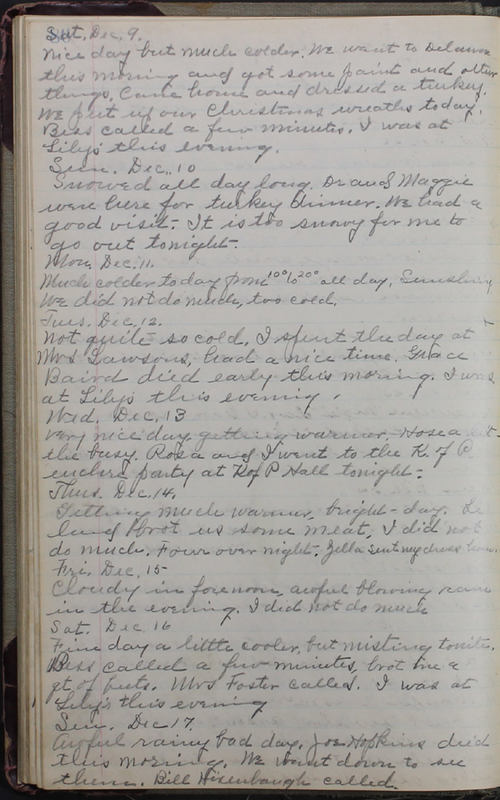 Sat. Dec. 9.
Nice day but much colder. We went to Delaware
this morning and got some paint and other
things. Came home and dressed a turkey.
We put up our Christmas wreaths today.
Bess called a few minutes. I was at
Lily's this evening.
Sun. Dec. 10
Snowed all day long. Dr and Maggie
were here for turkey dinner. We had a
good visit. It is too snowy for me to
go out tonight.
Mon. Dec. 11.
Much colder today from 10° to 20° all day,
We did not do much, too cold.
Tues. Dec. 12.
Not quite so cold. I spent the day at
Mrs Lawsons, had a nice time. Grace
Baird died early this morning. I was
at Lily's this evening.
Wed. Dec. 13
Very nice day getting warmer.
the busy. Rosa and I went to the K. of P.
euchre party at K of P Hall tonight.
Thurs. Dec. 14,
Getting much warmer, bright day.
brot us some meat, I did not
do much. Four over night. Zella sent my dress home.
Fri. Dec. 15
Cloudy in forenoon, awful blowing rain
in the evening. I did not do much
Sat. Dec. 16
Fine day a little cooler, but misting tonite.
Bess called a few minutes, brot me a
qt of Mrs Foster called. I was at
Lily's this evening
Sun. Dec 17.
Awful rainy bad day. Joe Hopkins died
this morning. We went down to see
them. Bill Hixenbaugh called.